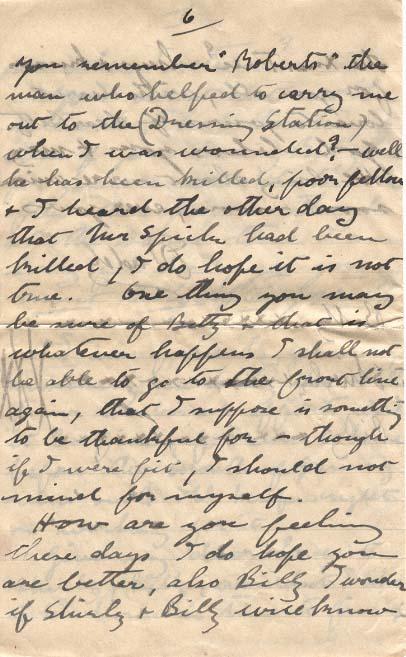 6
you remember "Roberts" the
man who helped to carry me
out to the (Dressing Station)
when I was wounded? - well
he has been killed, poor fellow
& I heard the other day
that Mr had been
killed, I do hope it is not
true. One thing you may
be sure of Betty & that is
whatever happens I shall not
be able to go to the front line
again, that I suppose is something
to be thankful for - though
if I were fit, I should not
mind for myself.
How are you feeling
these days I do hope you
are better, also Billy I wonder
if Shirly & Billy will know